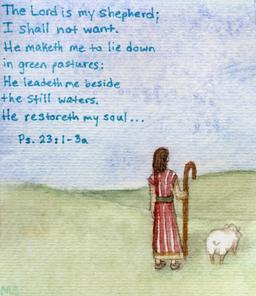 The Lord is my Shepherd;
I shall not want.
He maketh me to lie down
in green pastures:
He leadeth me beside
the still waters.
He restoreth my soul...
Ps. 23:1-3a